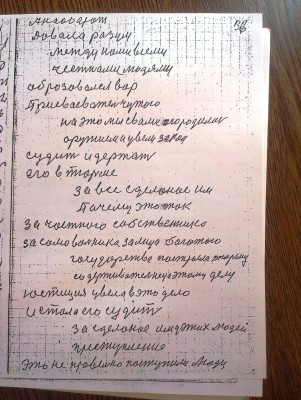 58
давала разум
между нами всеми
честными людями
образовался вор
присвоевател чужого
на это мы с вами огородили
оружием и увели закон
судит и держат
его в тюрме
за все сделаное им
Почему это так
за частного собственика
за самованика за лица богатого
государства построила тюрму
содержателную этому делу
юстиция увела в это дело
и стала его судит
за сделаное им этих людей
преступление
Это не правелно поступили люди